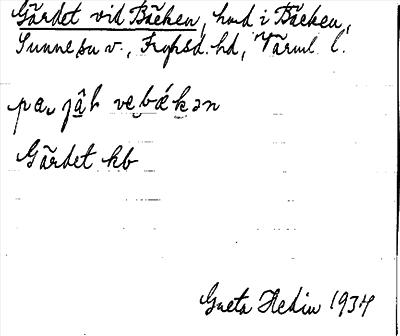 Gärdet vid Bäcken, hmd i Bäcken,
Sunne sn v., Fryksd. hd, Värml. l.
Gärdet hb
Greta Hedin 1934